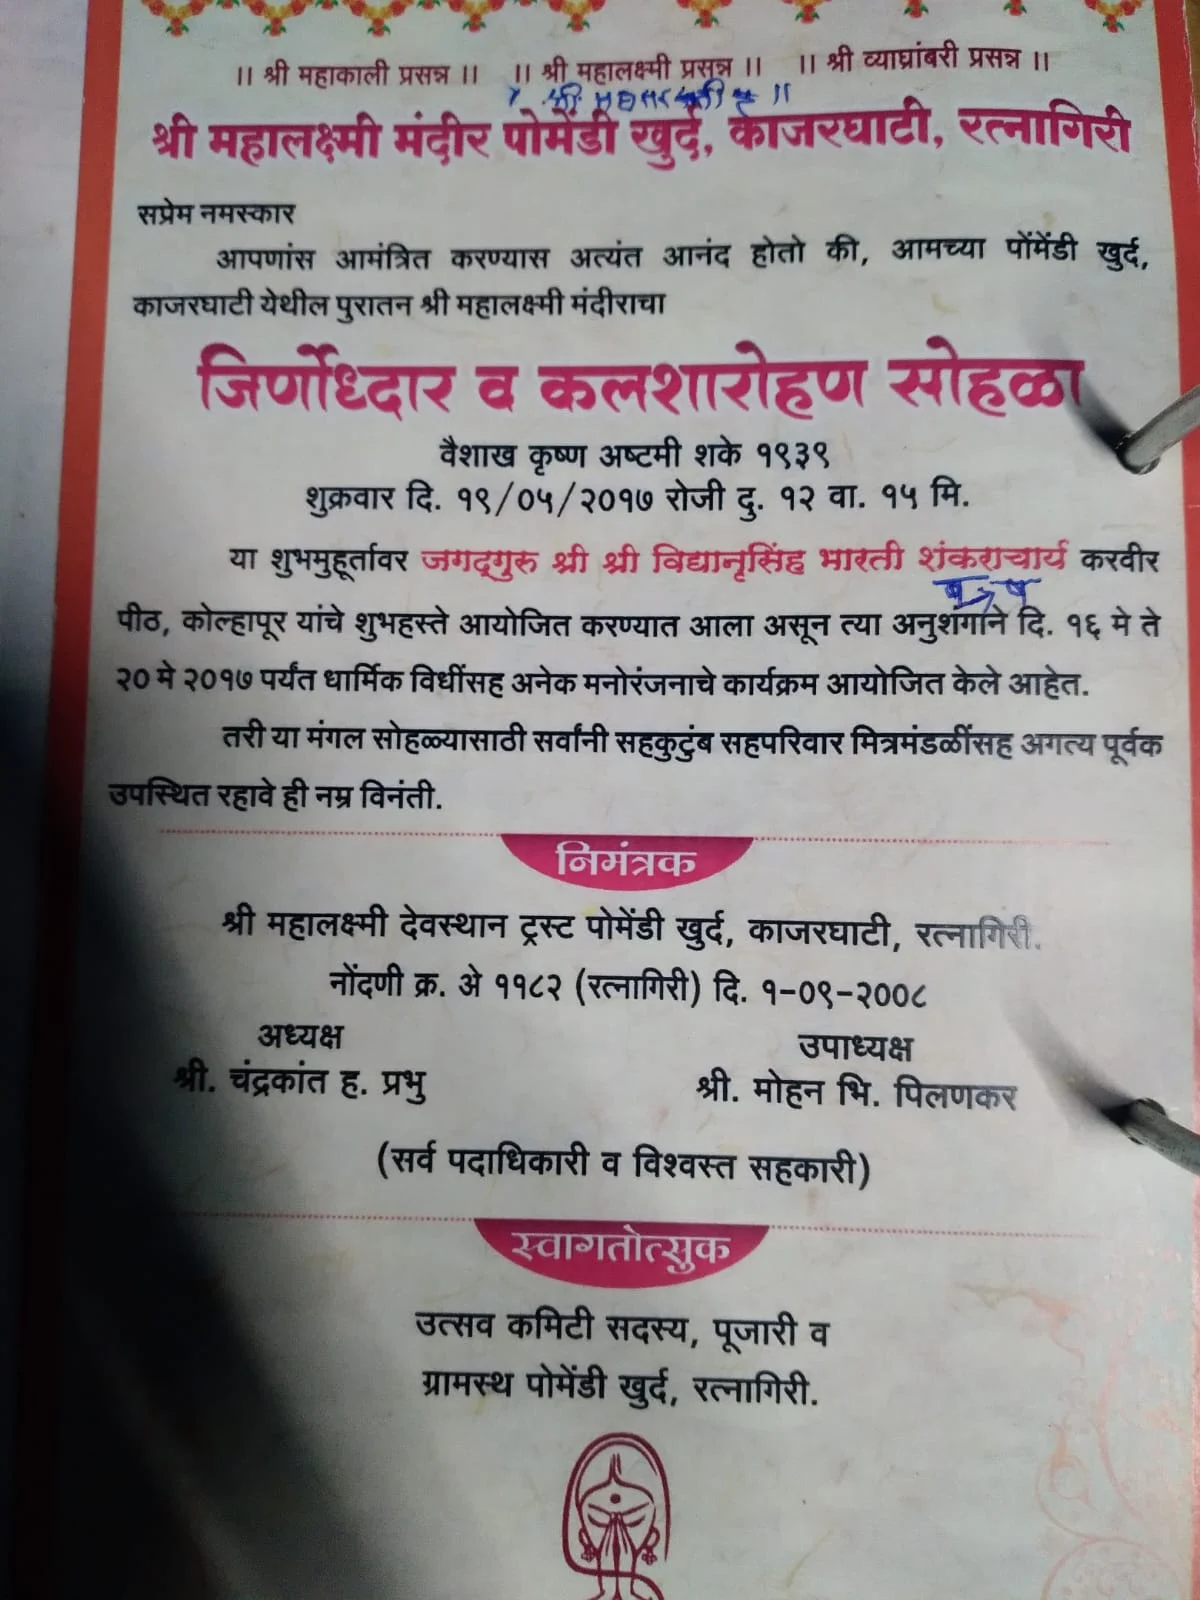 ।। श्री महाकाली प्रसन्न ।। ।। श्री महालक्ष्मी प्रसन्न ।। ।। श्री व्याघ्रांबरी प्रसन्न ।।
श्री महालक्ष्मी मंदीर पोमेंडी खुर्द, काजरघाटी, रत्नागिरी
सप्रेम नमस्कार
आपणांस आमंत्रित करण्यास अत्यंत आनंद होतो की, आमच्या पोंमेंडी खुर्द,
काजरघाटी येथील पुरातन श्री महालक्ष्मी मंदीराचा
जिर्णोध्दार व कलशारोहण सोहळा
वैशाख कृष्ण अष्टमी शके १९३९
शुक्रवार दि. १९/०५/२०१७ रोजी दु. १२ वा. १५ मि.
या शुभमुहूर्तावर जगद्‌गुरु श्री श्री विद्यानृसिंह भारती शंकराचार्य करवीर
पीठ, कोल्हापूर यांचे शुभहस्ते आयोजित करण्यात आला असून त्या अनुशंगाने दि. १६ मे ते
२० मे २०१७ पर्यंत धार्मिक विधींसह अनेक मनोरंजनाचे कार्यक्रम आयोजित केले आहेत.
तरी या मंगल सोहळ्यासाठी सर्वांनी सहकुटुंब सहपरिवार मित्रमंडळींसह अगत्य पूर्वक
उपस्थित रहावे ही नम्र विनंती.
निमंत्रक
श्री महालक्ष्मी देवस्थान ट्रस्ट पोमेंडी खुर्द, काजरघाटी, रत्नागिरी.
नोंदणी क्र. अे ११८२ (रत्नागिरी) दि. १-०९-२००८
अध्यक्ष उपाध्यक्ष
श्री. चंद्रकांत ह. प्रभु श्री. मोहन भि. पिलणकर
(सर्व पदाधिकारी व विश्वस्त सहकारी)
स्वागतोत्सुक
उत्सव कमिटी सदस्य, पूजारी व
ग्रामस्थ पोमेंडी खुर्द, रत्नागिरी.